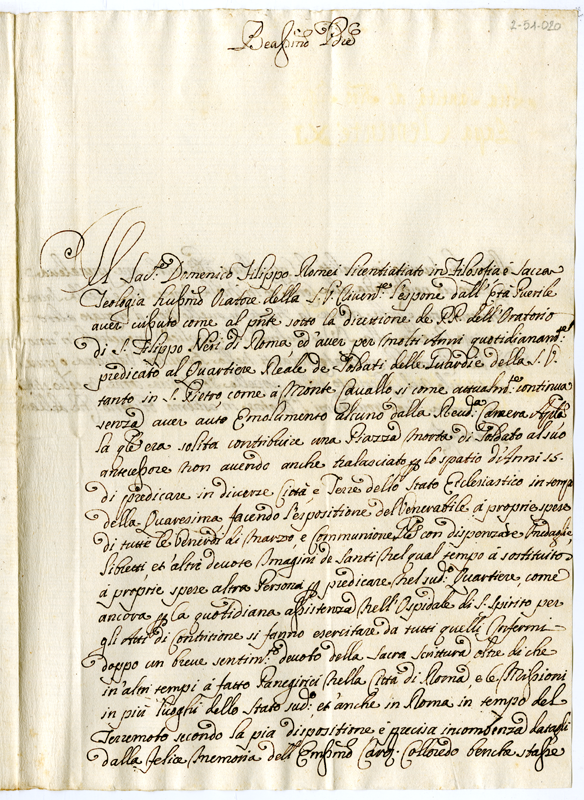 2-51-020
Beatissmo Pre
Il Sacte Domenico Filippo Romei licentiatiato in Filosofia e Sacra
Teologia humssmo Oratore della S.V. l'espone dall'età Puerile
aver vissuto come al pnte sotto la direzzione de PP. dell'Oratorio
di S. Filippo Neri di Roma, ed'aver per molti Anni quotidianamte
predicato al Quartiere Reale de Soldati delle Guardie della S.V.
tanto in S. Pietro come a Monte Cavallo si come attualmte continua
senza aver auto Emolumento alcuno dalla Revda Camera Apca
la qle era solita contribuire una Piazza morta di Soldato al suo
antecessore non avendo anche tralasciato p lo spatio di Anni 15.
di predicare in diverze Città e Terre dello Stato Ecclesiastico in tempo
della Quaresima facendo l'espositione del Venerabile à proprie spese
di tutti li Venerdi di Marzo e Communione con dispenzare Medaglie,
libretti et altri devote Imagini de Santi nel qual tempo à sostituito
à proprie spese altra Persona p predicare nel sudo Quartiere come
ancora p la quotidiana assistenza nell'Ospidale di S. Spirito per
gli Atti di Contritione si fanno esercitare da tutti quelli Infermi
doppo un breve sentimto devoto della Sacra Scrittura oltre di che
in altri tempi à fatto Panegirici nella Città di Roma, e le Missioni
in più luoghi dello Stato sudo et anche in Roma in tempo del
Terremoto secondo la pia dispositione e precisa incombenza datagli
dalla felice memoria dell'Emssmo Card. Colloredo benche stasse